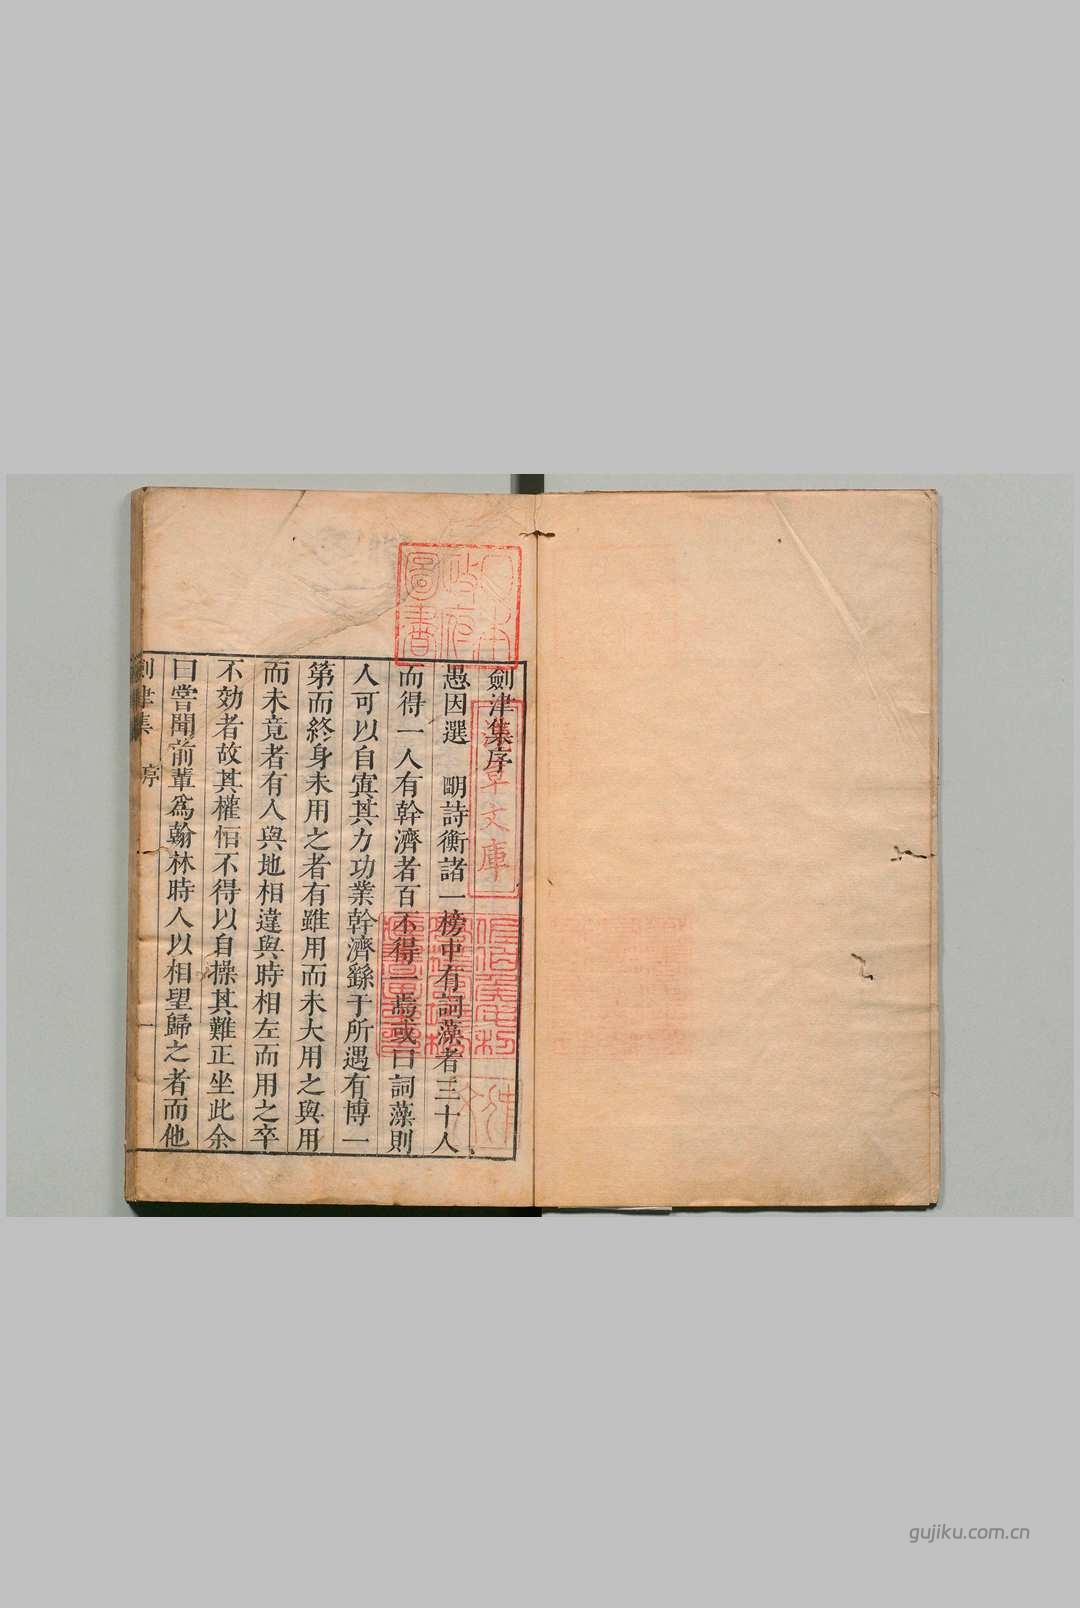 劍津集序
愚因選　明詩衡諸一榜中有詞藻者三十人
而得一人有幹濟者百不得一焉或曰詞藻則
人可以自寘其力功業幹濟繇于所遇有博一
第而終身未用之者有雖用而未大用之與用
而未竟者有人與地相違與時相左而用之卒
不効者故其權恒不得以自操其難正坐此余
曰嘗聞前輩為翰林時人以相望歸之者而他
劍津集 序 一
日本
政府
圖書
淺草文庫
gujiku.com.cn